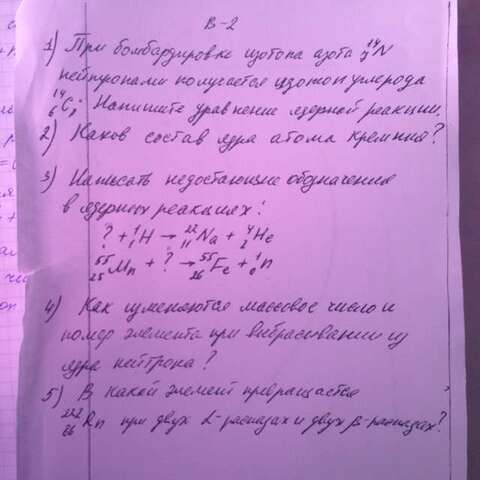 В-2
1) При бомбардировке изотопа азота ¹⁴₇N
нейтронами получается изотоп углерода
¹⁴₆C; Напишите уравнение ядерной реакции.
2) Каков состав ядра атома кремния?
3) Написать недостающие обозначения
в ядерных реакциях:
? + ¹₁H → ²²₁₁Na + ⁴₂He
⁵⁵₂₅Mn + ? → ⁵⁵₂₆Fe + ¹₀n
4) Как изменяются массовое число и
номер элемента при выбрасывании из
ядра нейтрона?
5) В какой элемент превращается
Rn при двух α-распадах и двух β-распадах?